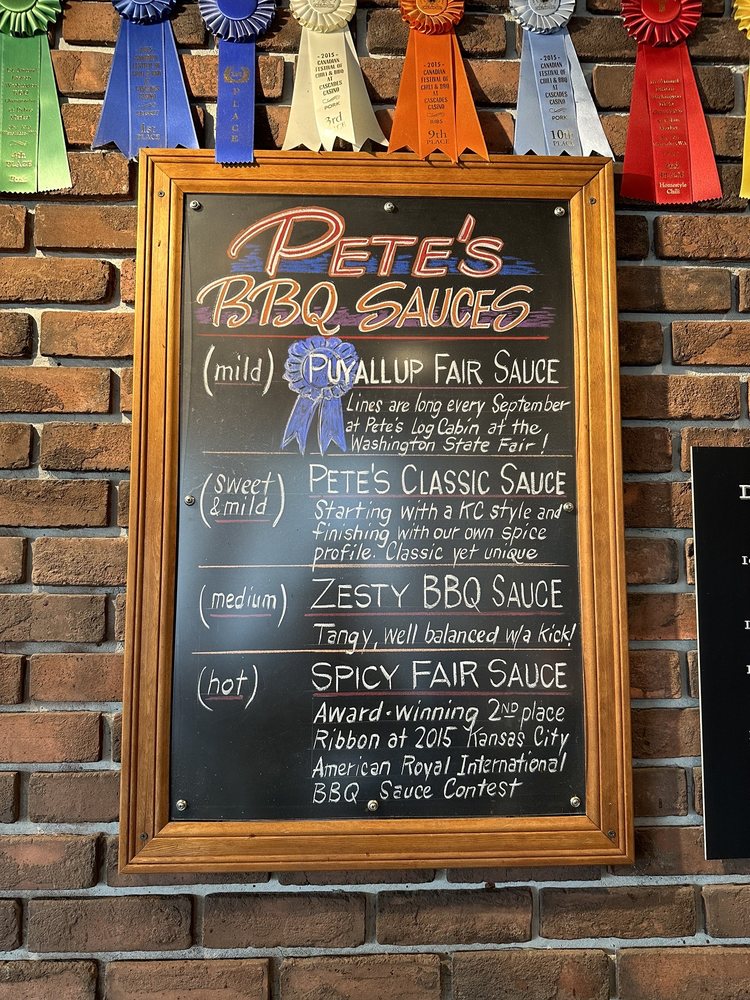 4th PLACE
1st
PLACE
PLACE
- 2015 -
CANADIAN
FESTIVAL OF
CHILI & BBQ
AT
CASCADES
CASINO
PORK
3rd
- 2015 -
CANADIAN
FESTIVAL OF
CHILI & BBQ
AT
CASCADES
CASINO
RIBS
9th
PLACE
- 2015 -
CANADIAN
FESTIVAL OF
CHILI & BBQ
AT
CASCADES
CASINO
PORK
10th
PLACE
PLACE
Homestyle
Chili
PETE'S
BBQ SAUCES
(mild) PUYALLUP FAIR SAUCE
Lines are long every September
at Pete's Log Cabin at the
Washington State Fair!
(sweet & mild) PETE'S CLASSIC SAUCE
Starting with a KC style and
finishing with our own spice
profile. Classic yet unique
(medium) ZESTY BBQ SAUCE
Tangy, well balanced w/a kick!
(hot) SPICY FAIR SAUCE
Award-winning 2ND place
Ribbon at 2015 Kansas City
American Royal International
BBQ Sauce Contest